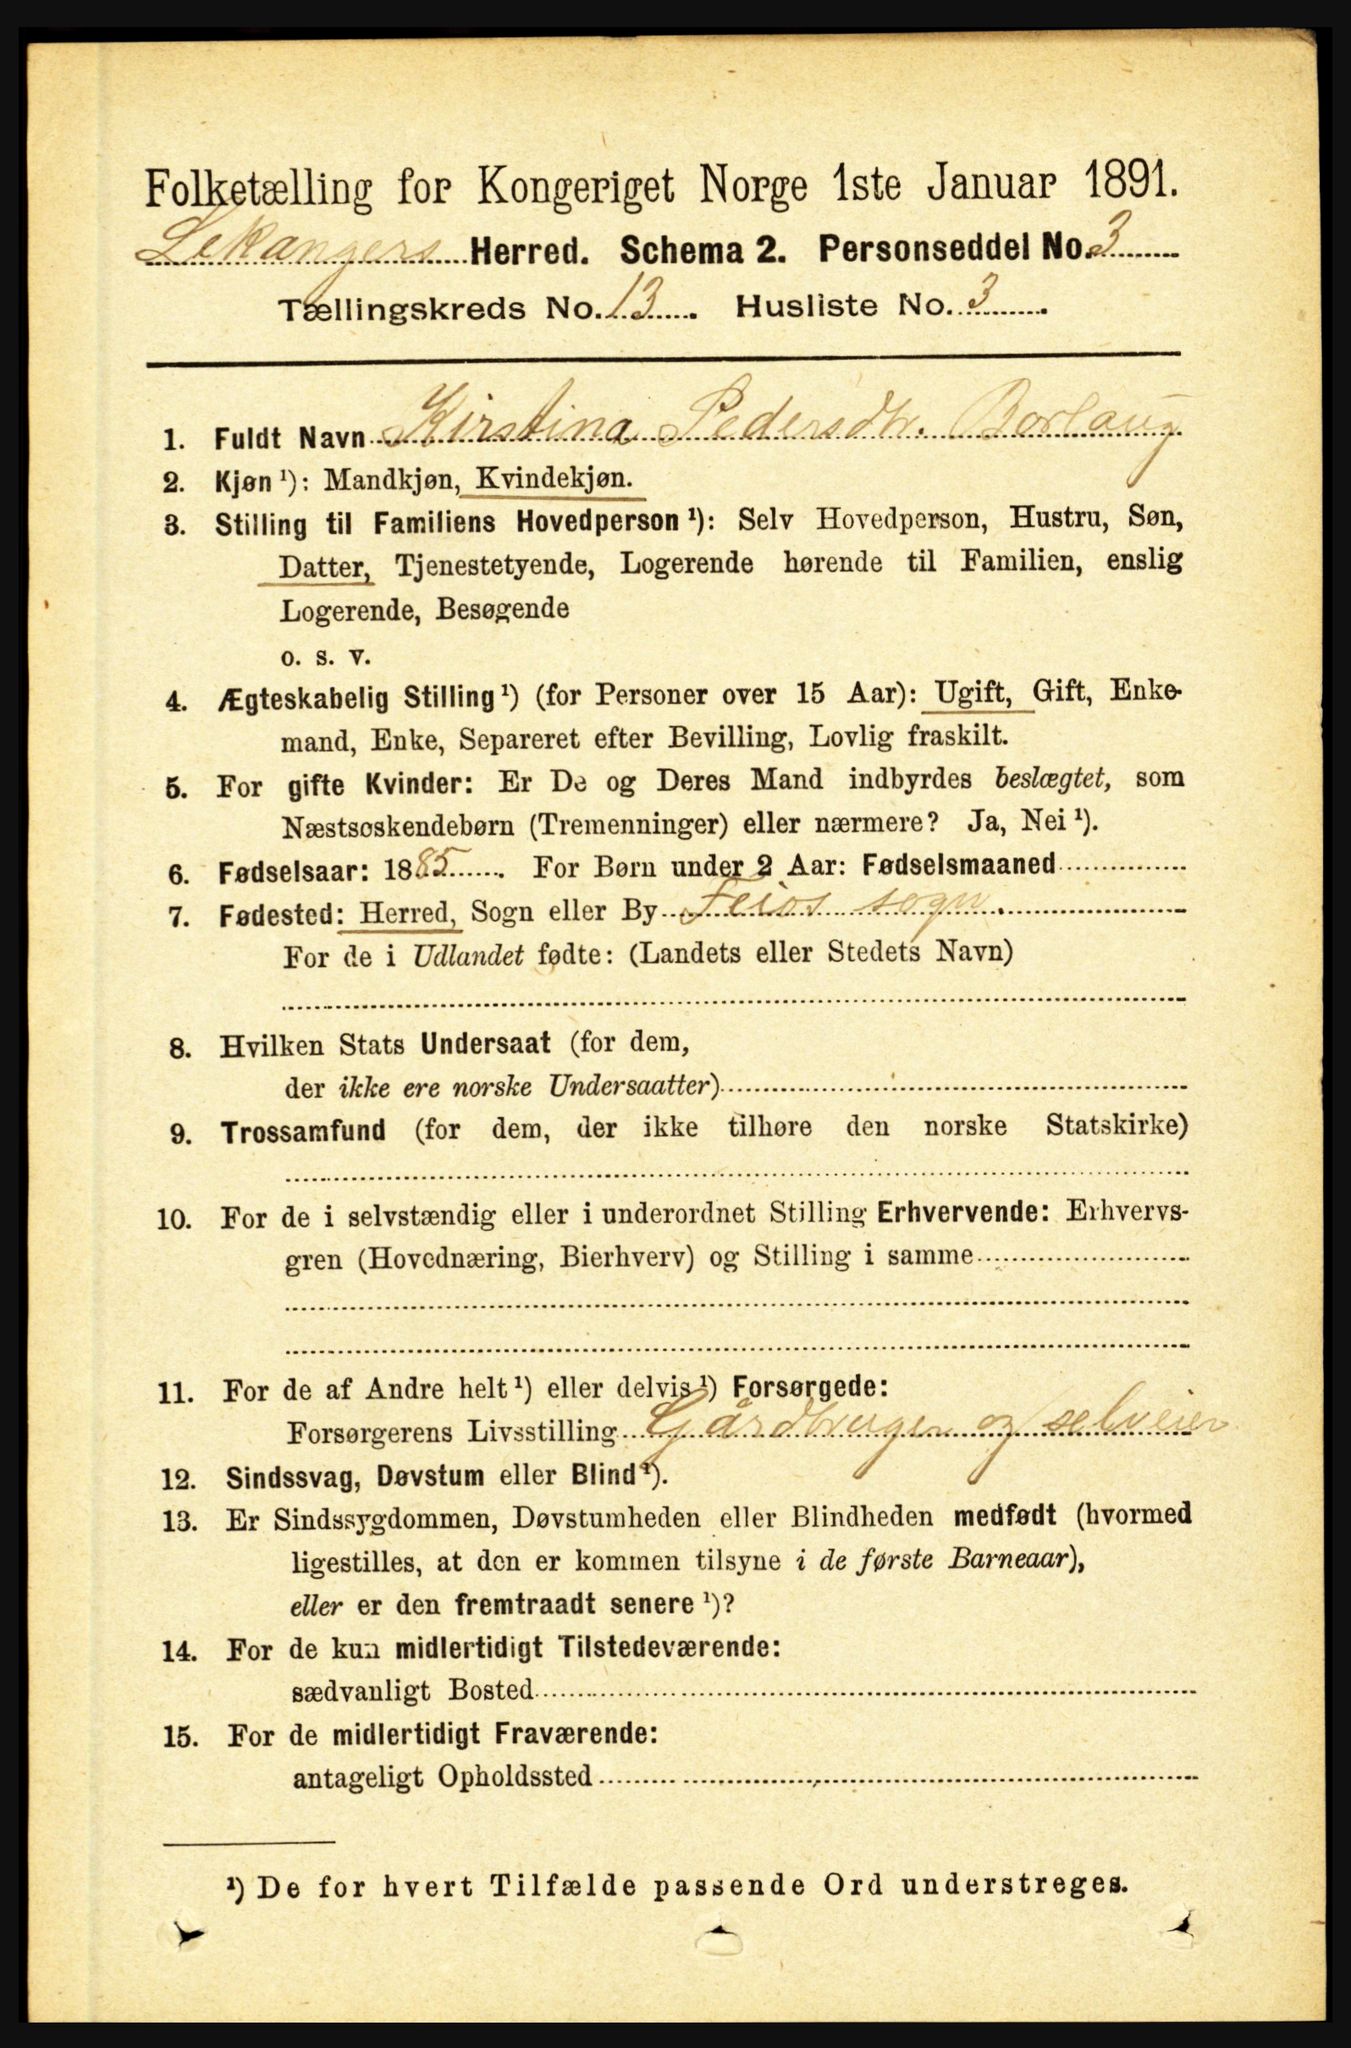 Folketælling for Kongeriget Norge 1ste Januar 1891.
Lekangers Herred. Schema 2. Personseddel No. 3
Tællingskreds No. 13. Husliste No. 3.
1. Fuldt Navn Kirstina Pedersdtr. Borlaug
2. Kjøn ¹): Mandkjøn, Kvindekjøn.
3. Stilling til Familiens Hovedperson ¹): Selv Hovedperson, Hustru, Søn,
Datter, Tjenestetyende, Logerende hørende til Familien, enslig
Logerende, Besøgende
o. s. v.
4. Ægteskabelig Stilling ¹) (for Personer over 15 Aar): Ugift, Gift, Enke-
mand, Enke, Separeret efter Bevilling, Lovlig fraskilt.
5. For gifte Kvinder: Er De og Deres Mand indbyrdes beslægtet, som
Næstsøskendebørn (Tremenninger) eller nærmere? Ja, Nei ¹).
6. Fødselsaar: 1885. For Børn under 2 Aar: Fødselsmaaned
7. Fødested: Herred, Sogn eller By Feios sogn.
For de i Udlandet fødte: (Landets eller Stedets Navn)
8. Hvilken Stats Undersaat (for dem,
der ikke ere norske Undersaatter)
9. Trossamfund (for dem, der ikke tilhøre den norske Statskirke)
10. For de i selvstændig eller i underordnet Stilling Erhvervende: Erhvervs-
gren (Hovednæring, Bierhverv) og Stilling i samme
11. For de af Andre helt ¹) eller delvis ¹) Forsørgede:
Forsørgerens Livsstilling Gårdbruger og selveier
12. Sindssvag, Døvstum eller Blind ¹).
13. Er Sindssygdommen, Døvstumheden eller Blindheden medfødt (hvormed
ligestilles, at den er kommen tilsyne i de første Barneaar),
eller er den fremtraadt senere ¹)?
14. For de kun midlertidigt Tilstedeværende:
sædvanligt Bosted
15. For de midlertidigt Fraværende:
antageligt Opholdssted
¹) De for hvert Tilfælde passende Ord understreges.